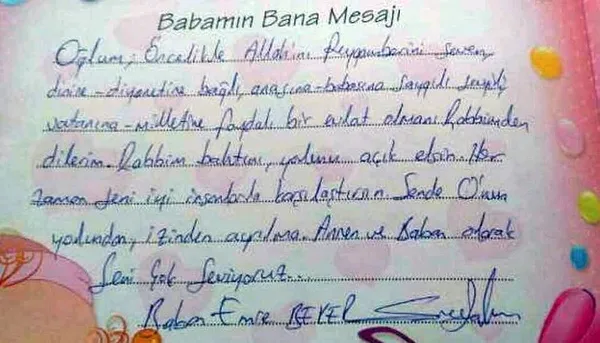 Babamın Bana Mesajı
Oğlum, Öncelikle Allahını Peygamberini seven,
dinine-diyanetine bağlı, anasına-babasına saygılı sevgili
vatanına-milletine faydalı bir evlat olmanı Rabbimden
dilerim. Rabbim bahtını, yolunu açık etsin. Her
zaman seni iyi insanlarla karşılaştırsın. Sende O'nun
yolundan, izinden ayrılma. Annen ve Baban olarak
Seni Çok Seviyoruz...
Baban Emre